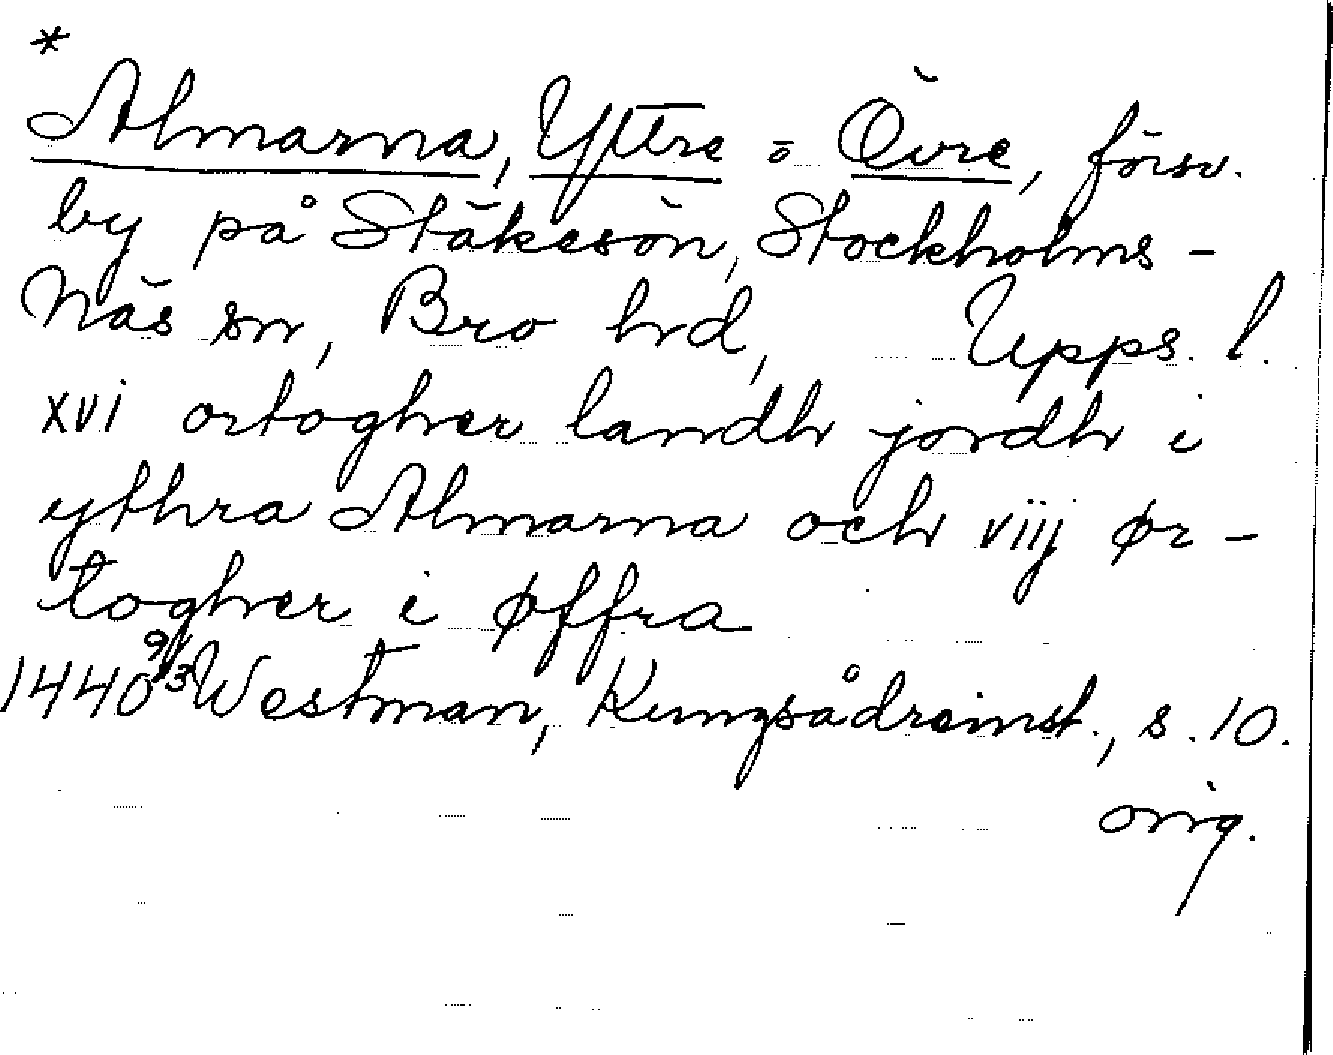 *
Almarna, Yttre o Övre, försv.
by på Stäkesön, Stockholms-
Näs sn, Bro hd, Upps. l.
xvi ortogher landh jordh i
ythra Almarna och viij ør-
togher i øffra
1440 9/3 Westman, Kungsådreinst., s. 10.
orig.